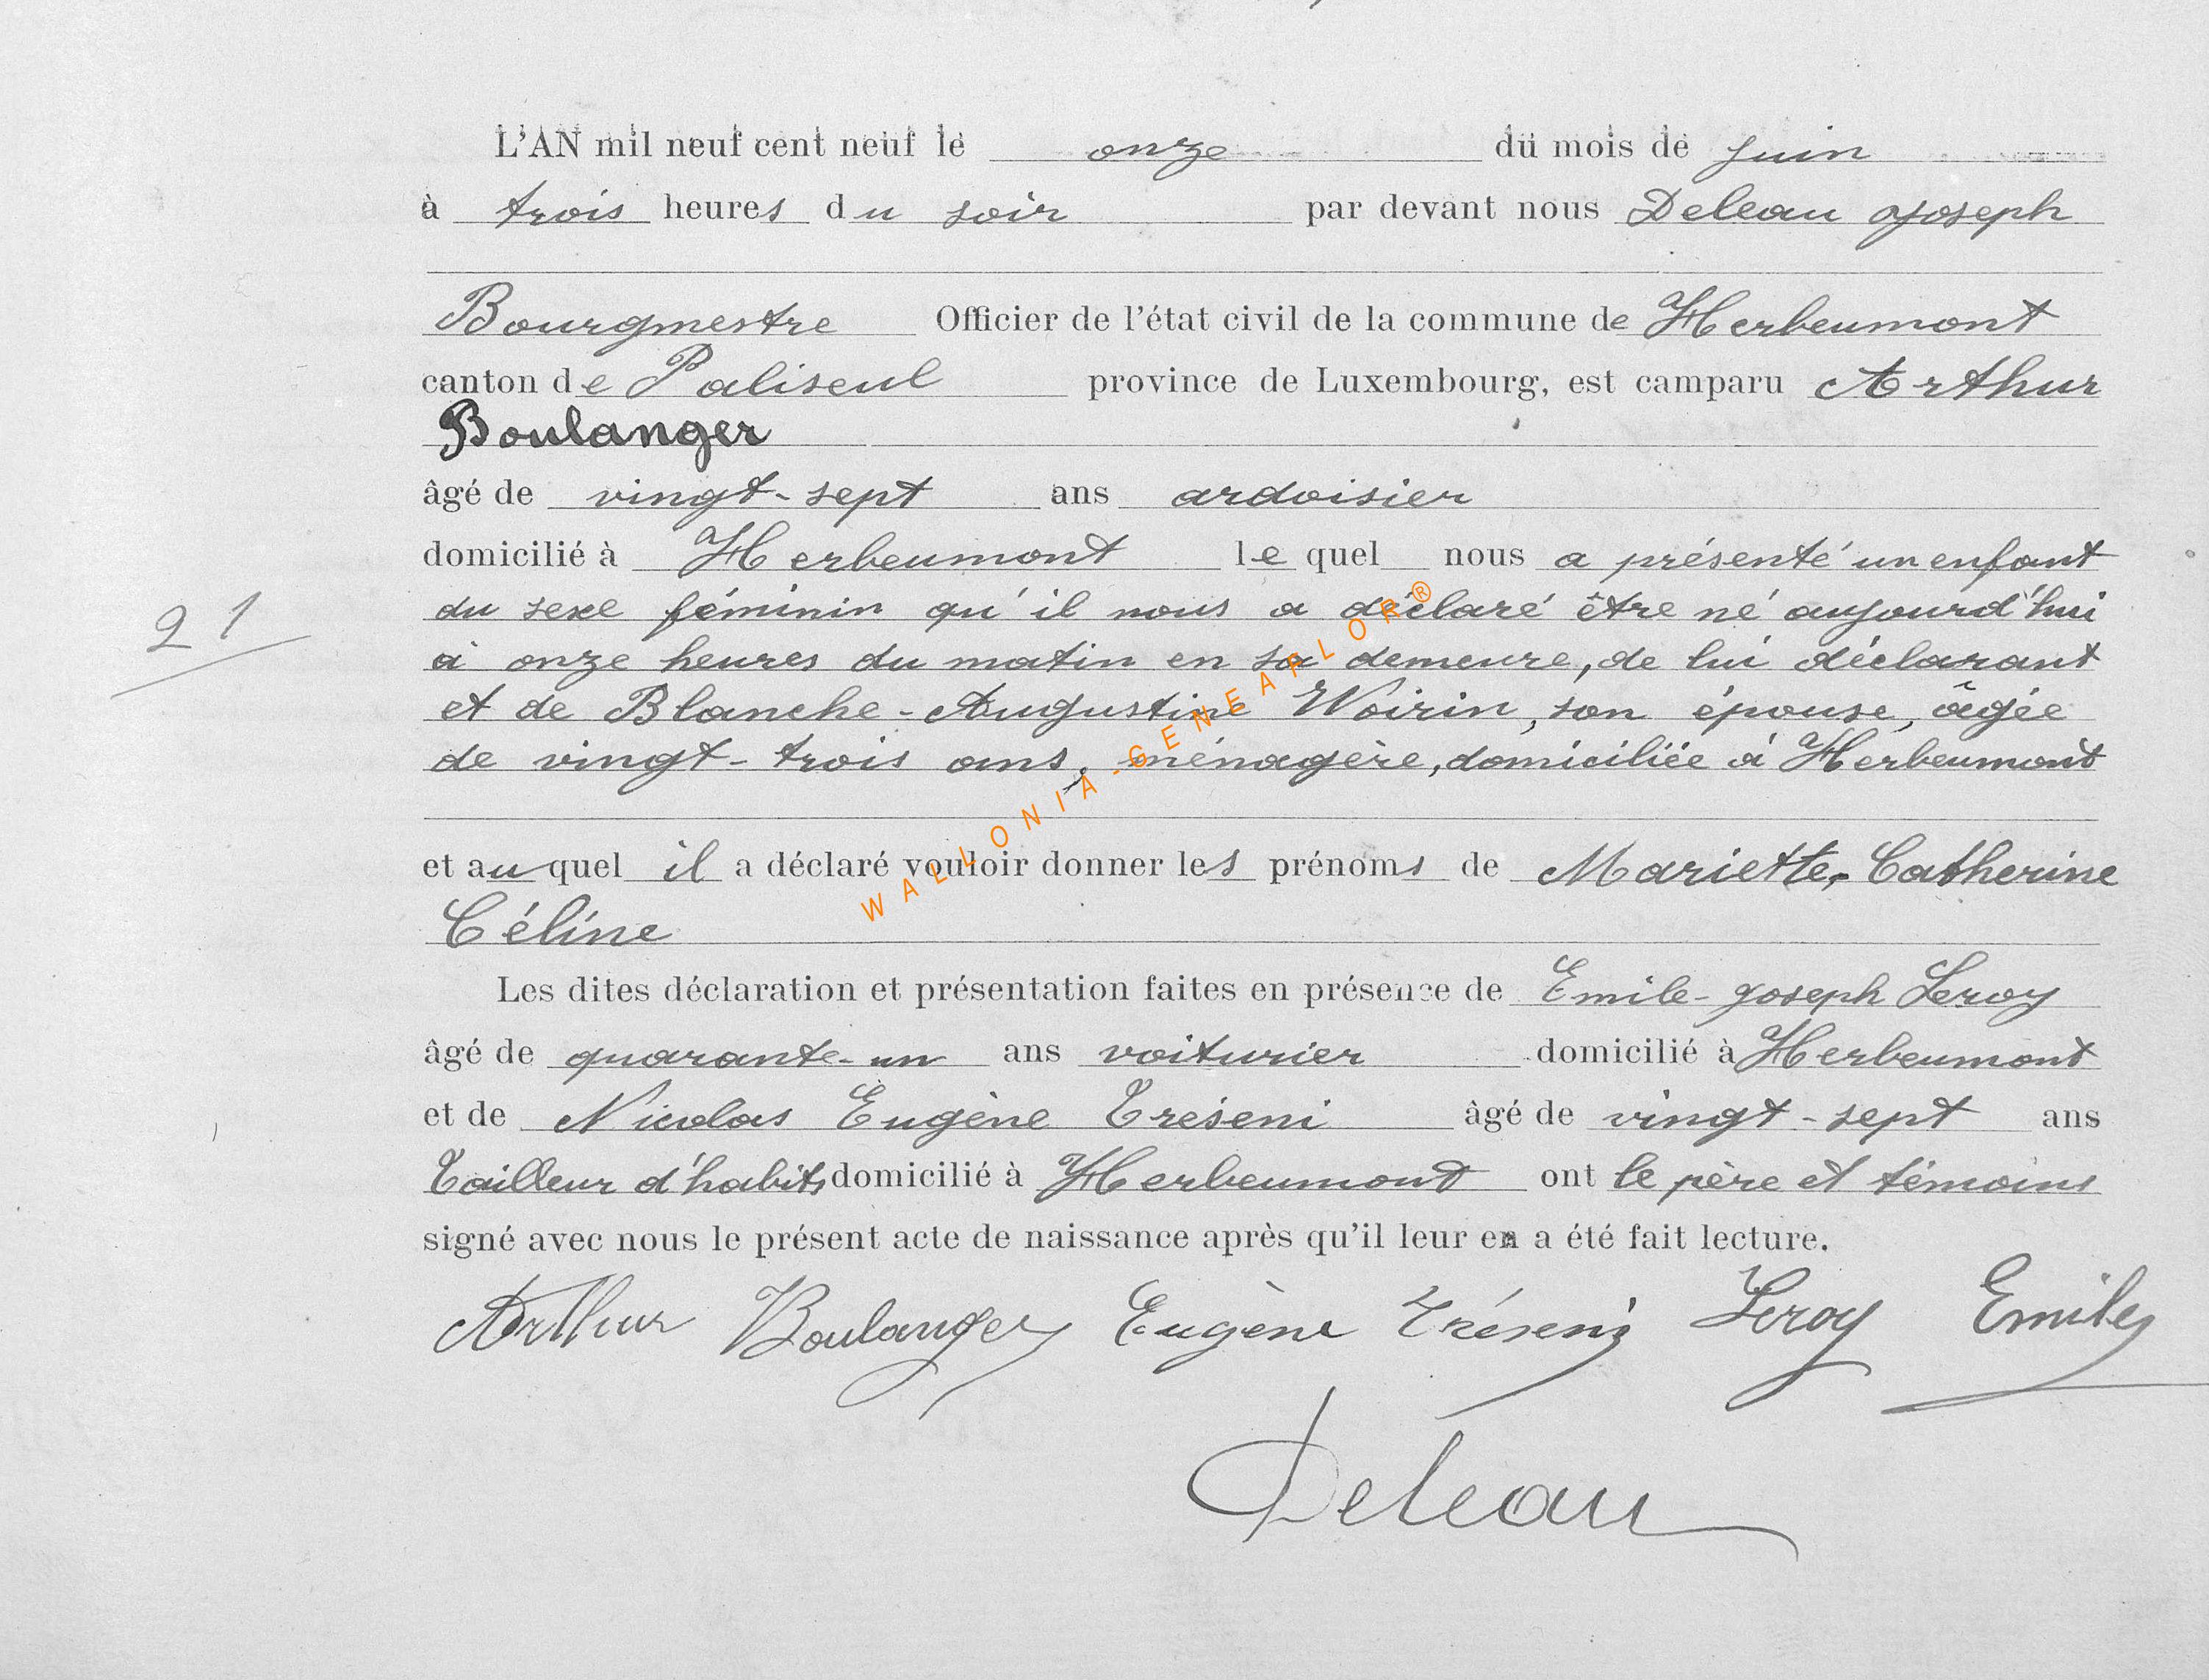 L'AN mil neuf cent neuf le onze du mois de juin
à trois heures du soir par devant nous Deleau Joseph
Bourgmestre Officier de l'état civil de la commune de Herbeumont
canton de Paliseul province de Luxembourg, est camparu Arthur
Boulanger
âgé de vingt-sept ans ardoisier
domicilié à Herbeumont lequel nous a présenté un enfant
du sexe féminin qu'il nous a déclaré être né aujourd'hui
21
à onze heures du matin en sa demeure, de lui déclarant
et de Blanche-Augustine Woirin, son épouse, âgée
de vingt-trois ans, ménagère, domiciliée à Herbeumont
et auquel il a déclaré vouloir donner les prénoms de Mariette-Catherine
Céline
Les dites déclaration et présentation faites en présence de Emile-Joseph Leroy
âgé de quarante-un ans voiturier domicilié à Herbeumont
et de Nicolas Eugène Tréseni âgé de vingt-sept ans
Tailleur d'habits domicilié à Herbeumont ont le père et témoins
signé avec nous le présent acte de naissance après qu'il leur en a été fait lecture.
Arthur Boulanger Eugène Tréseni Leroy Emile
Deleau
WALLONIA-GENEARLOR®